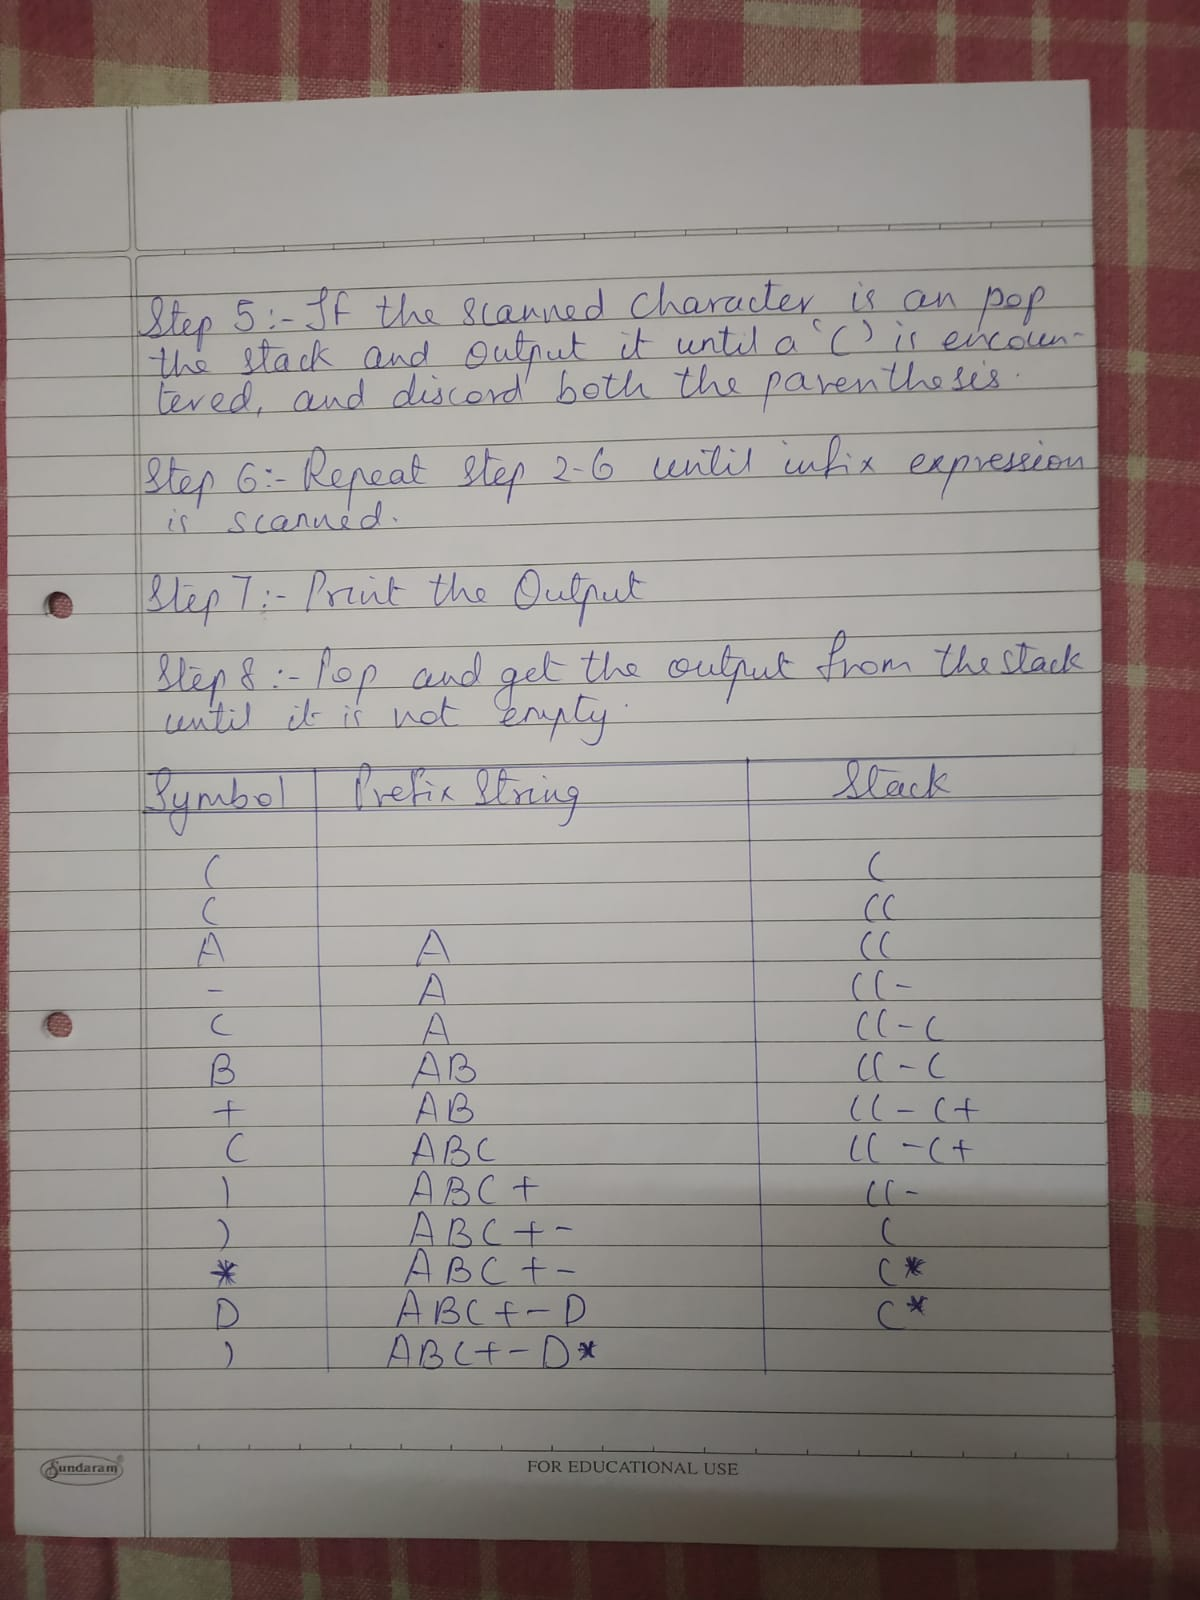 Step 5:- If the scanned character is an pop
the stack and output it until a '(' is encoun-
tered, and discord both the parenthesis.
Step 6:- Repeat step 2-6 until infix expression
is scanned.
Step 7:- Print the Output
Step 8:- Pop and get the output from the stack
until it is not empty.
Symbol Prefix String Stack
( (
( ((
A A ((
- A ((-
( A ((-(
B AB ((-(
+ AB ((-(+
C ABC ((-(+
) ABC+ ((-
) ABC+- (
* ABC+- (*
D ABC+-D (*
) ABC+-D*
Sundaram FOR EDUCATIONAL USE